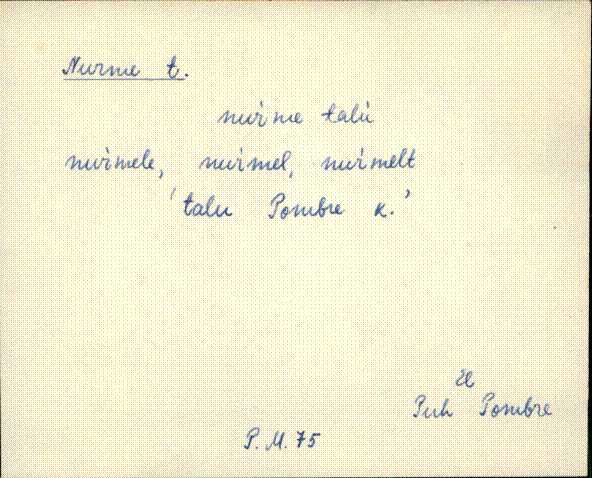 Nurme t.
nurme talu
nurmele, nurmel, nurmelt
'talu Pombre k.'
El
Puh Pombre
P. M. 75